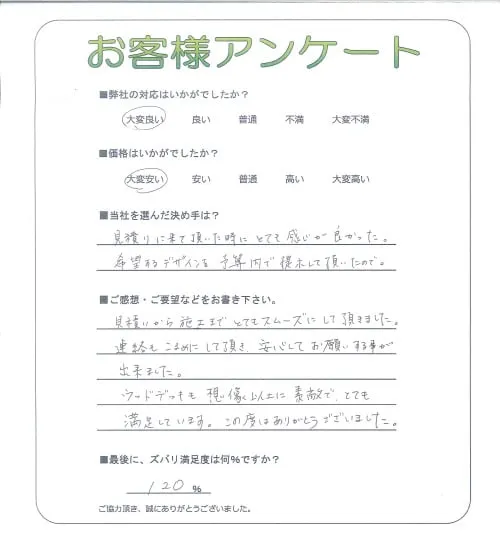 お客様アンケート
■弊社の対応はいかがでしたか？
大変良い 良い 普通 不満 大変不満
■価格はいかがでしたか？
大変安い 安い 普通 高い 大変高い
■当社を選んだ決め手は？
見積りに来て頂いた時にとても感じが良かった。
希望するデザインを予算内で提示して頂いたので。
■ご感想・ご要望などをお書き下さい。
見積いから施工までとてもスムーズにして頂きました。
連絡もこまめにして頂き、安心してお願いする事が
出来ました。
ウッドデッキも想像以上に素敵で、とても
満足しています。この度はありがとうございました。
■最後に、ズバリ満足度は何％ですか？
120 %
ご協力頂き、誠にありがとうございました。